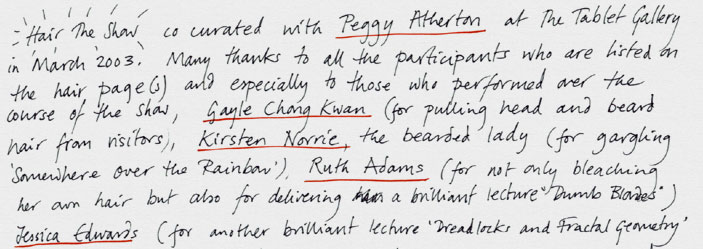 Hair The Show co curated with Peggy Atherton at The Tablet Gallery
in March 2003. Many thanks to all the participants who are listed on
the hair page(s) and especially to those who performed over the
course of the show, Gayle Chong Kwan (for pulling head and beard
hair from visitors), Kirsten Norrie, the bearded lady (for gargling
'Somewhere over the Rainbow'), Ruth Adams (for not only bleaching
her own hair but also for delivering a brilliant lecture "Dumb Blondes")
Jessica Edwards (for another brilliant lecture 'Dreadlocks and Fractal Geometry'